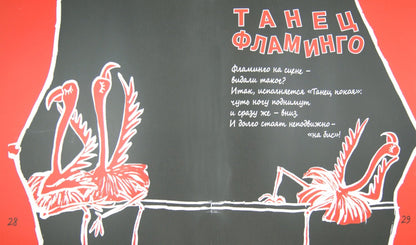 ТАНЕЦ
ФЛАМИНГО
Фламинго на сцене –
видали такое?
Итак, исполняется «Танец покоя»:
чуть ногу поднимут
и сразу же – вниз.
И долго стоят неподвижно –
«на бис»!
28
29